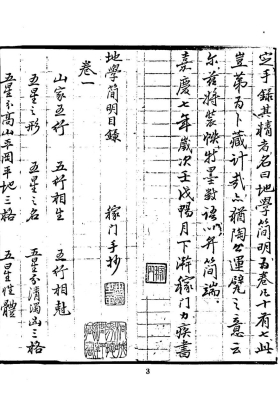 定手錄其精者名曰地學簡明為卷凡十有此
豈第為卜藏計哉亦猶陶公運甓之意云
尔茲將裝帙特墨數語以弁簡端
嘉慶七年歲次壬戌暢月下澣稼門力疾書
地學簡明目錄
稼門手抄
卷一
山家五行 五行相生 五行相尅
五星之形 五星之名 五星分清濁凶三格
五星分高山平岡平地三格 五星性體
3